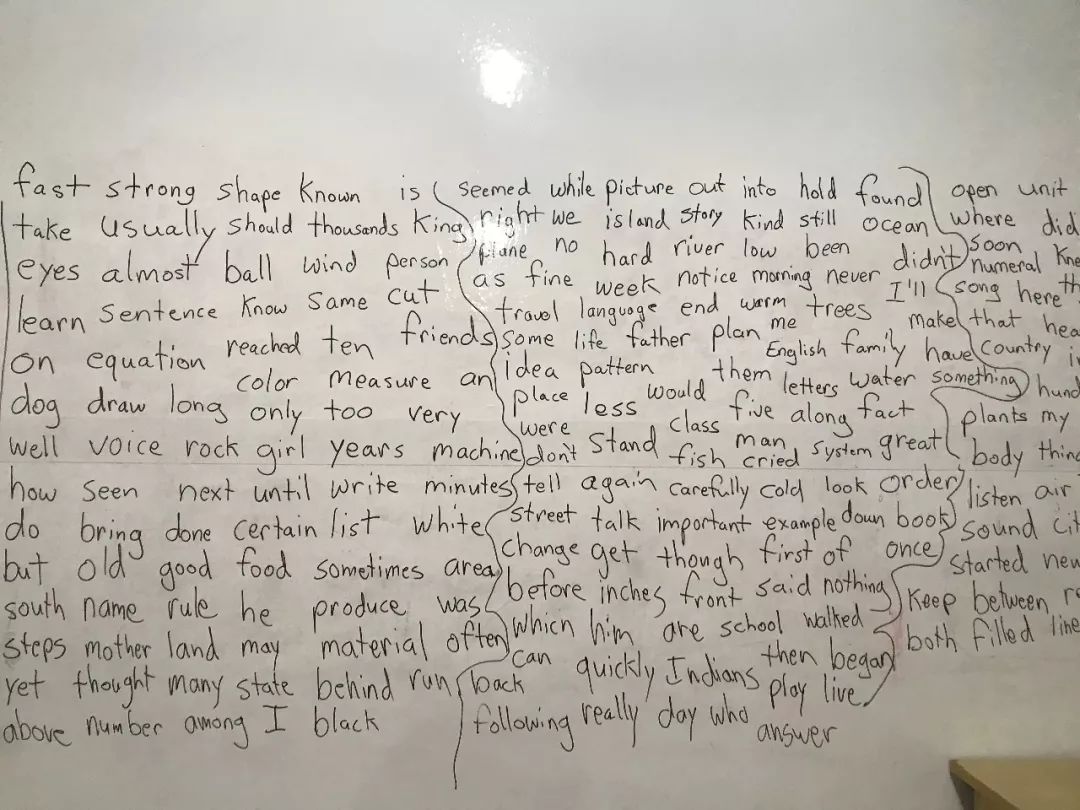 fast strong shape known is
take usually should thousands king
eyes almost ball wind person
learn sentence know same cut
on equation reached ten friends
dog draw long color measure an
only too very
well voice rock girl years machine
how seen next until write minutes
do bring done certain list white
but old good food sometimes area
south name rule he produce was
steps mother land may material often
yet thought many state behind run
above number among I black
seemed while picture out into hold found
right we island story kind still ocean
plane no hard river low been
as fine week notice morning never didn't
travel language end warm trees I'll
some life father plan me make
idea pattern English family have
place less would them letters water something
were class five along fact
don't stand fish man system great
cried
tell again carefully cold look order
street talk important example down book
change get though first of once
before inches front said nothing
which him are school walked
can quickly Indians then began
back play live
following really day who
answer
open unit
where did
soon
numeral
song here
that
country
plants my
body
listen air
sound
started new
keep between
both filled